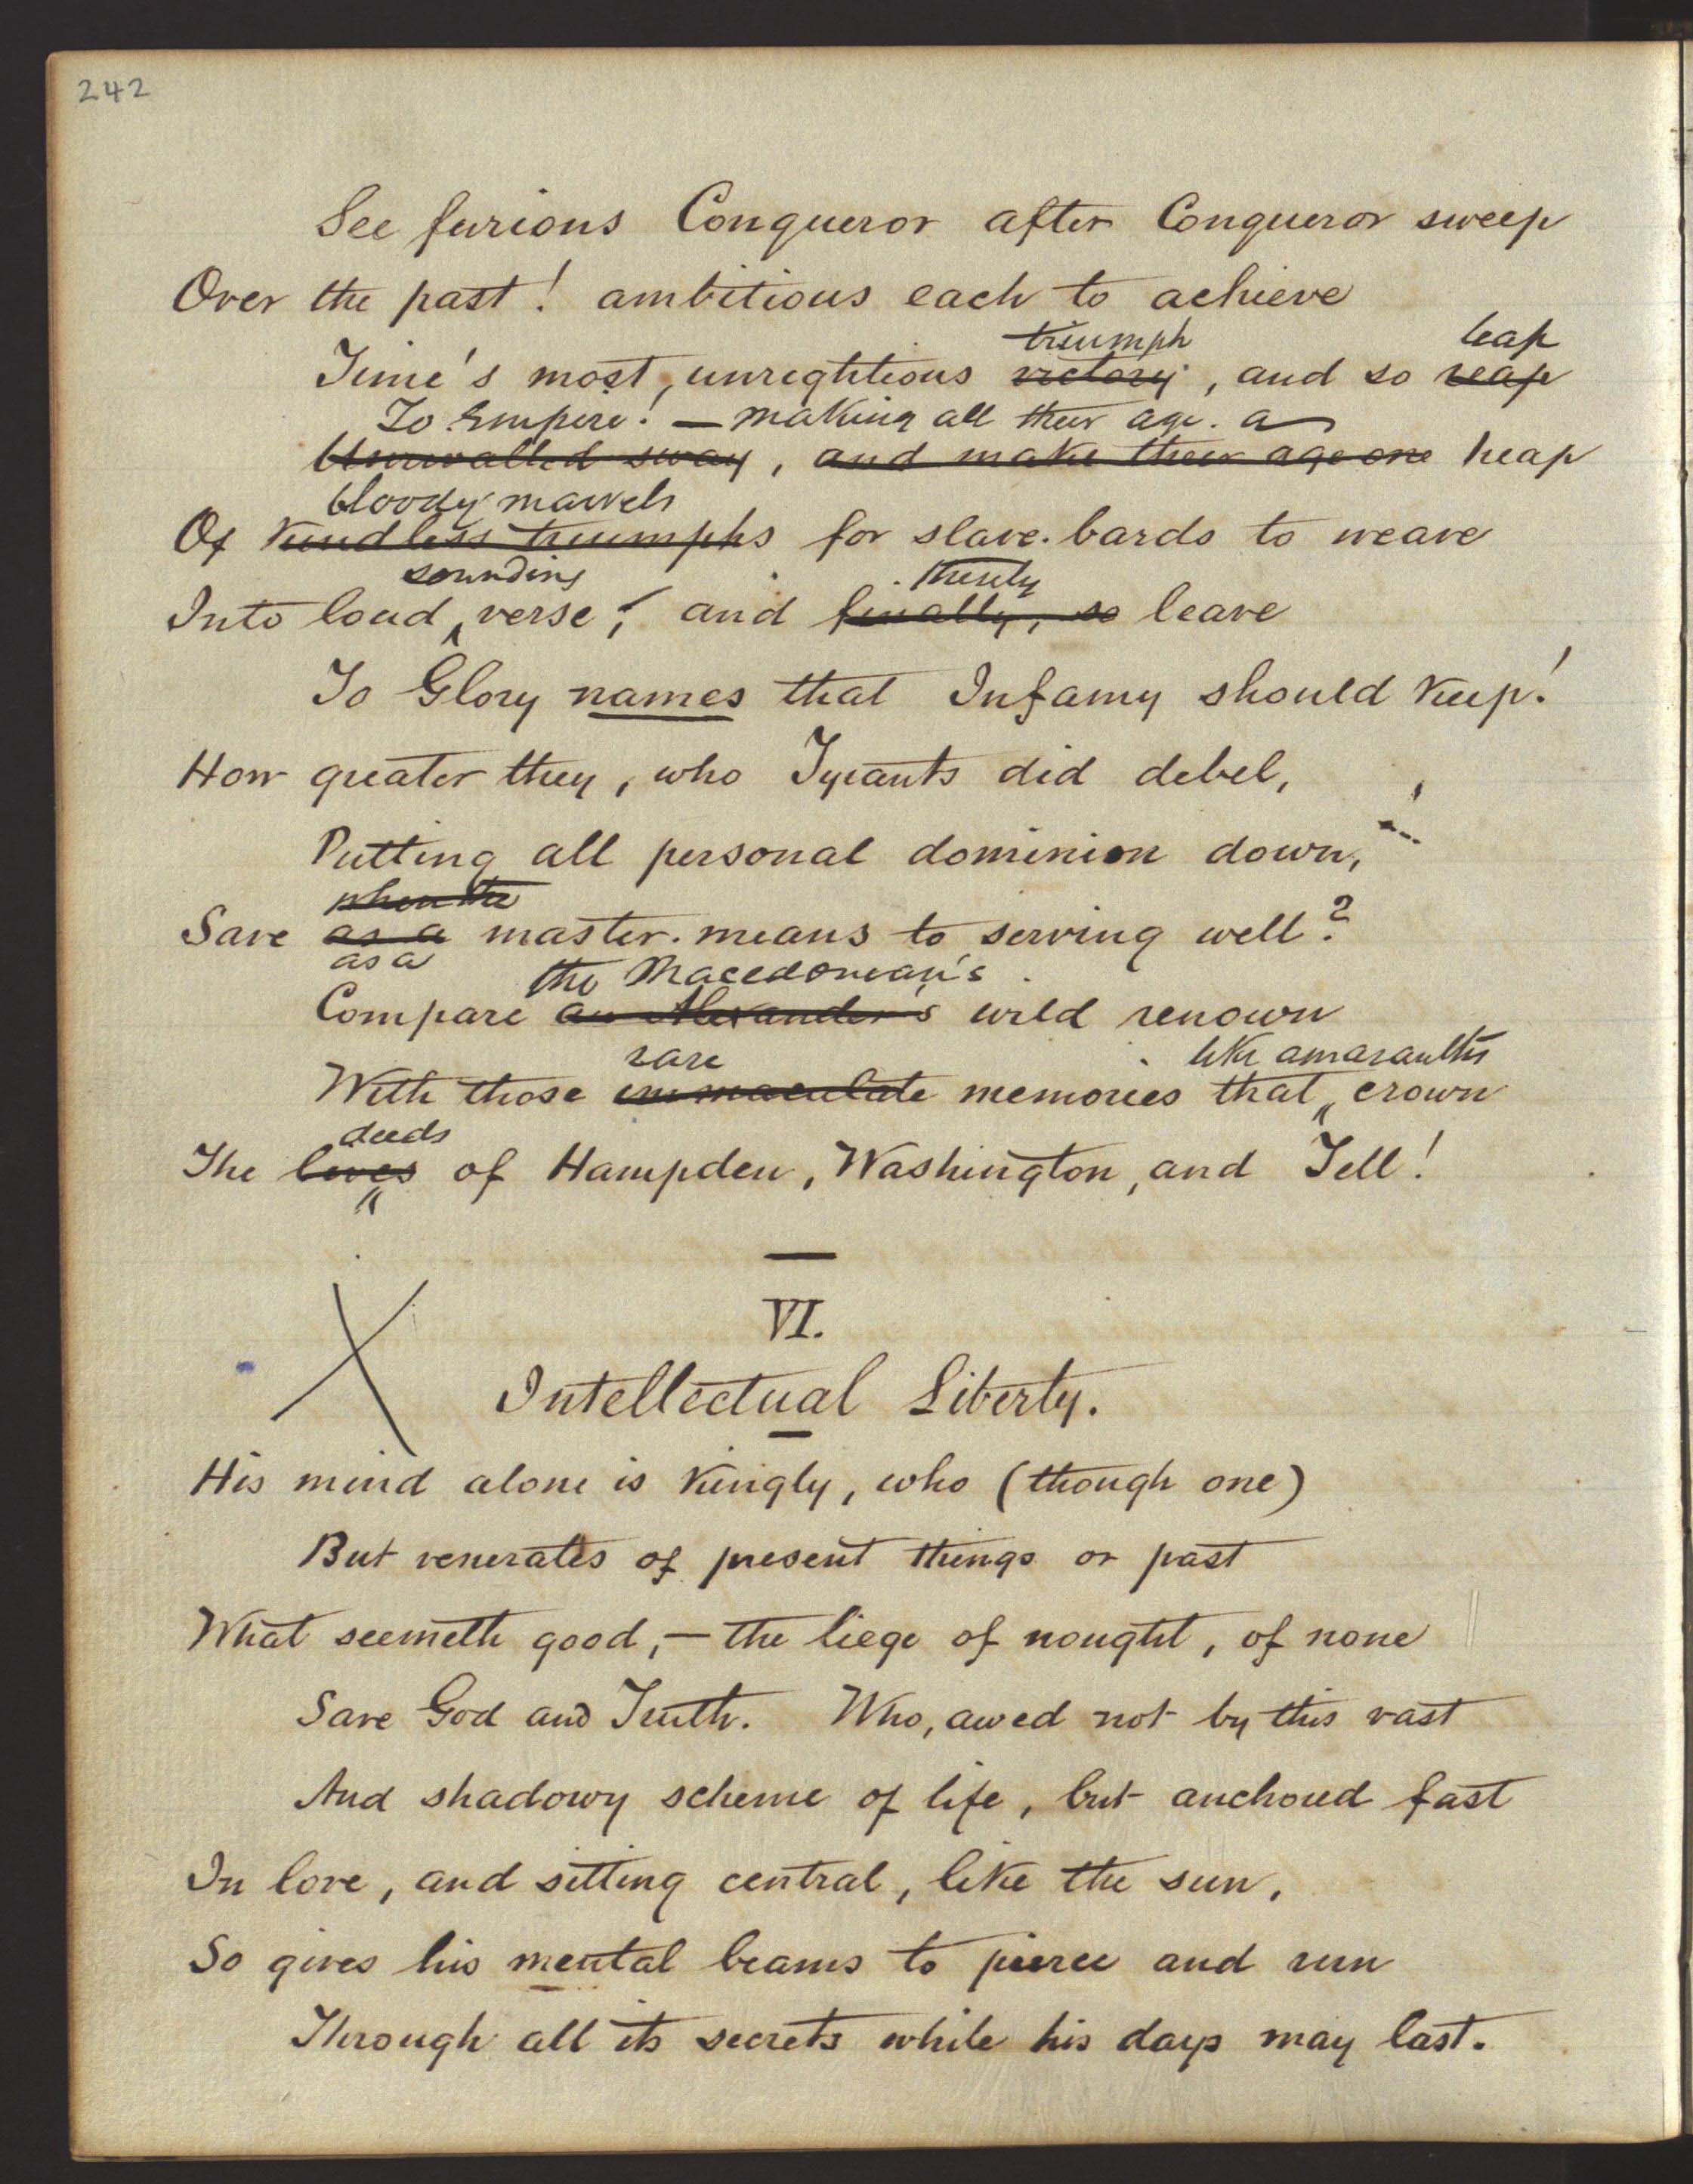 242
See furious Conqueror after Conqueror sweep
Over the past! ambitious each to achieve
triumph leap
Time's most, unrightious victory, and so reap
To Empire! — making all their age a
Unrivalled sway, and make their age one heap
bloody marvels
Of kindless triumphs for slave-bards to weave
sounding thusly
Into loud verse; and finally, so leave
To Glory names that Infamy should keep!
How greater they, who Tyrants did debel,
Putting all personal dominion down,
when the
Save as a master-means to serving well?
as a the Macedonian's
Compare an Alexander's wild renown
rare like amaranths
With those immaculate memories that crown
deeds
The lives of Hampden, Washington, and Tell!
VI.
Intellectual Liberty.
His mind alone is kingly, who (though one)
But venerates of present things or past
What seemeth good,— the liege of nought, of none
Save God and Truth. Who, awed not by this vast
And shadowy scheme of life, but anchored fast
In love, and sitting central, like the sun,
So gives his mental beams to pierce and run
Through all its secrets while his days may last.